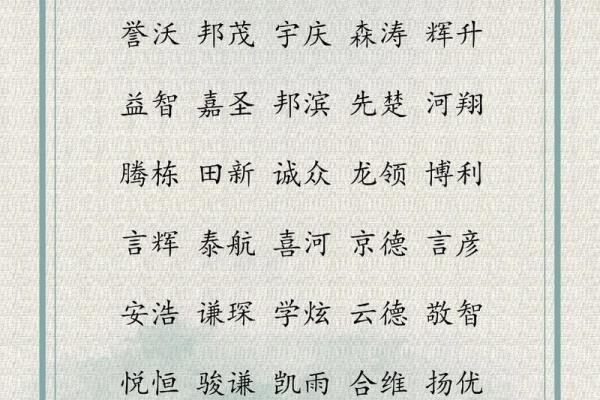 誉沃 邦茂 宇庆 森涛 辉升
益智 嘉圣 邦滨 先楚 河翔
腾栋 田新 诚众 龙领 博利
言辉 泰航 喜河 京德 言彦
安浩 谦琛 学炫 云德 敬智
悦恒 骏谦 凯雨 合维 扬优